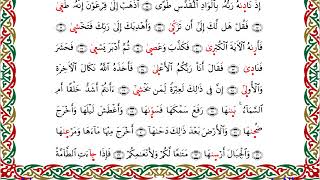 إِذْ نَادَىٰهُ رَبُّهُۥ بِٱلْوَادِ ٱلْمُقَدَّسِ طُوًى ٱذْهَبْ إِلَىٰ فِرْعَوْنَ إِنَّهُۥ طَغَىٰ
فَقُلْ هَل لَّكَ إِلَىٰٓ أَن تَزَكَّىٰ وَأَهْدِيَكَ إِلَىٰ رَبِّكَ فَتَخْشَىٰ
فَأَرَىٰهُ ٱلْأٓيَةَ ٱلْكُبْرَىٰ فَكَذَّبَ وَعَصَىٰ ثُمَّ أَدْبَرَ يَسْعَىٰ فَحَشَرَ
فَنَادَىٰ فَقَالَ أَنَا۠ رَبُّكُمُ ٱلْأَعْلَىٰ فَأَخَذَهُ ٱللَّهُ نَكَالَ ٱلْأٓخِرَةِ
وَٱلْأُولَىٰٓ إِنَّ فِى ذَٰلِكَ لَعِبْرَةً لِّمَن يَخْشَىٰٓ ءَأَنتُمْ أَشَدُّ خَلْقًا أَمِ
ٱلسَّمَآءُ ۚ بَنَىٰهَا رَفَعَ سَمْكَهَا فَسَوَّىٰهَا وَأَغْطَشَ لَيْلَهَا وَأَخْرَجَ
ضُحَىٰهَا وَٱلْأَرْضَ بَعْدَ ذَٰلِكَ دَحَىٰهَآ أَخْرَجَ مِنْهَا مَآءَهَا وَمَرْعَىٰهَا
وَٱلْجِبَالَ أَرْسَىٰهَا مَتَٰعًا لَّكُمْ وَلِأَنْعَٰمِكُمْ فَإِذَا جَآءَتِ ٱلطَّآمَّةُ